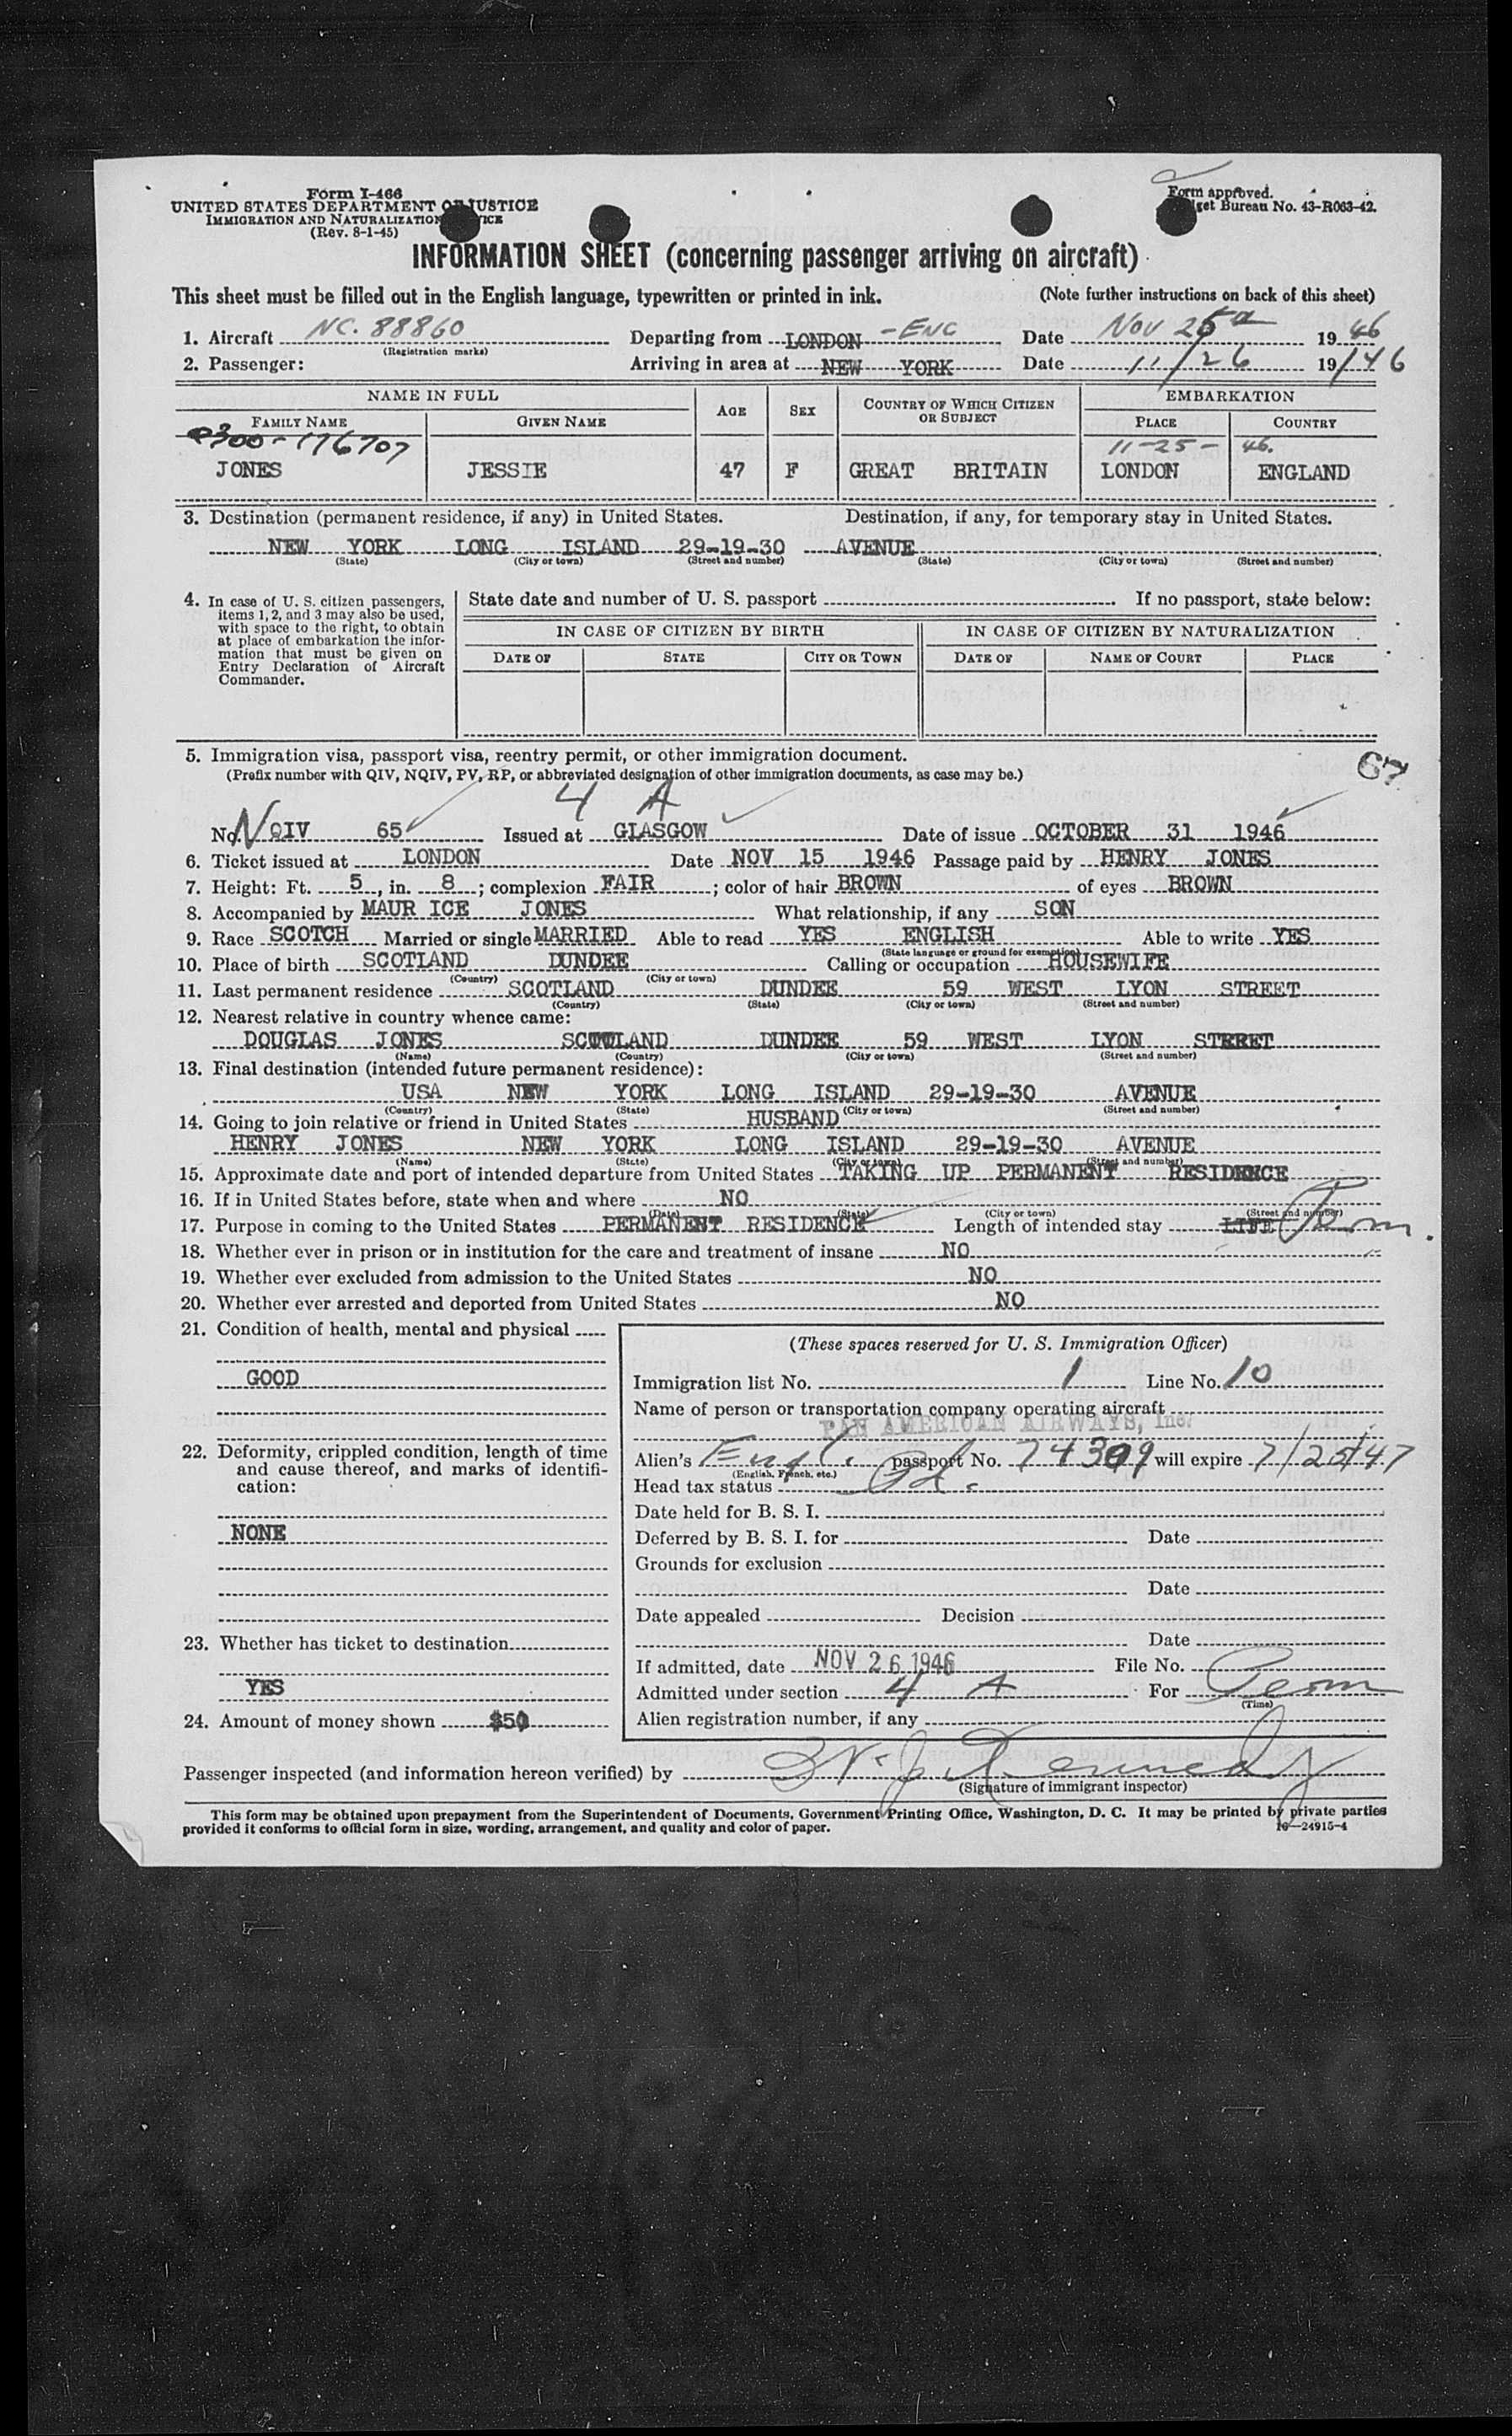 Form I-466
UNITED STATES DEPARTMENT OF JUSTICE
IMMIGRATION AND NATURALIZATION
(Rev. 8-1-45)
Form approved.
Bureau No. 43-R063-42.
INFORMATION SHEET (concerning passenger arriving on aircraft)
This sheet must be filled out in the English language, typewritten or printed in ink. (Note further instructions on back of this sheet)
1. Aircraft NC. 88860 Departing from LONDON - ENG Date Nov 25 1946
(Registration marks)
2. Passenger: Arriving in area at NEW YORK Date 11/26 19/46
NAME IN FULL AGE SEX COUNTRY OF WHICH CITIZEN OR SUBJECT EMBARKATION
FAMILY NAME GIVEN NAME PLACE COUNTRY
0300-176707 11-25-46.
JONES JESSIE 47 F GREAT BRITAIN LONDON ENGLAND
3. Destination (permanent residence, if any) in United States. Destination, if any, for temporary stay in United States.
NEW YORK LONG ISLAND 29-19-30 AVENUE
(State) (City or town) (Street and number) (State) (City or town) (Street and number)
4. In case of U. S. citizen passengers, items 1, 2, and 3 may also be used, with space to the right, to obtain at place of embarkation the information that must be given on Entry Declaration of Aircraft Commander.
State date and number of U. S. passport If no passport, state below:
IN CASE OF CITIZEN BY BIRTH IN CASE OF CITIZEN BY NATURALIZATION
DATE OF STATE CITY OR TOWN DATE OF NAME OF COURT PLACE
5. Immigration visa, passport visa, reentry permit, or other immigration document.
(Prefix number with QIV, NQIV, PV, RP, or abbreviated designation of other immigration documents, as case may be.)
67
4 A
No. NQIV 65 Issued at GLASGOW Date of issue OCTOBER 31 1946
6. Ticket issued at LONDON Date NOV 15 1946 Passage paid by HENRY JONES
7. Height: Ft. 5, in. 8; complexion FAIR; color of hair BROWN of eyes BROWN
8. Accompanied by MAUR ICE JONES What relationship, if any SON
9. Race SCOTCH Married or single MARRIED Able to read YES ENGLISH Able to write YES
(State language or ground for exemption)
10. Place of birth SCOTLAND DUNDEE Calling or occupation HOUSEWIFE
(Country) (City or town)
11. Last permanent residence SCOTLAND DUNDEE 59 WEST LYON STREET
(Country) (State) (City or town) (Street and number)
12. Nearest relative in country whence came:
DOUGLAS JONES SCOTLAND DUNDEE 59 WEST LYON STREET
(Name) (Country) (City or town) (Street and number)
13. Final destination (intended future permanent residence):
USA NEW YORK LONG ISLAND 29-19-30 AVENUE
(Country) (State) (City or town) (Street and number)
14. Going to join relative or friend in United States HUSBAND
HENRY JONES NEW YORK LONG ISLAND 29-19-30 AVENUE
(Name) (State) (City or town) (Street and number)
15. Approximate date and port of intended departure from United States TAKING UP PERMANENT RESIDENCE
16. If in United States before, state when and where NO
(Date) (State) (City or town) (Street and number)
17. Purpose in coming to the United States PERMANENT RESIDENCE Length of intended stay LIFE Perm.
18. Whether ever in prison or in institution for the care and treatment of insane NO
19. Whether ever excluded from admission to the United States NO
20. Whether ever arrested and deported from United States NO
21. Condition of health, mental and physical
GOOD
22. Deformity, crippled condition, length of time and cause thereof, and marks of identification:
NONE
23. Whether has ticket to destination
YES
24. Amount of money shown $50
(These spaces reserved for U. S. Immigration Officer)
Immigration list No. 1 Line No. 10
Name of person or transportation company operating aircraft
PAN AMERICAN AIRWAYS, Inc.
Alien's Engl. passport No. 74309 will expire 7/25/47
(English, French, etc.)
Head tax status Pd.
Date held for B. S. I.
Deferred by B. S. I. for Date
Grounds for exclusion
Date
Date appealed Decision
Date
If admitted, date NOV 26 1946 File No.
Admitted under section 4 A For Perm
(Time)
Alien registration number, if any
Passenger inspected (and information hereon verified) by W. J. Kennedy
(Signature of immigrant inspector)
This form may be obtained upon prepayment from the Superintendent of Documents, Government Printing Office, Washington, D. C. It may be printed by private parties
provided it conforms to official form in size, wording, arrangement, and quality and color of paper.
16—24915-4